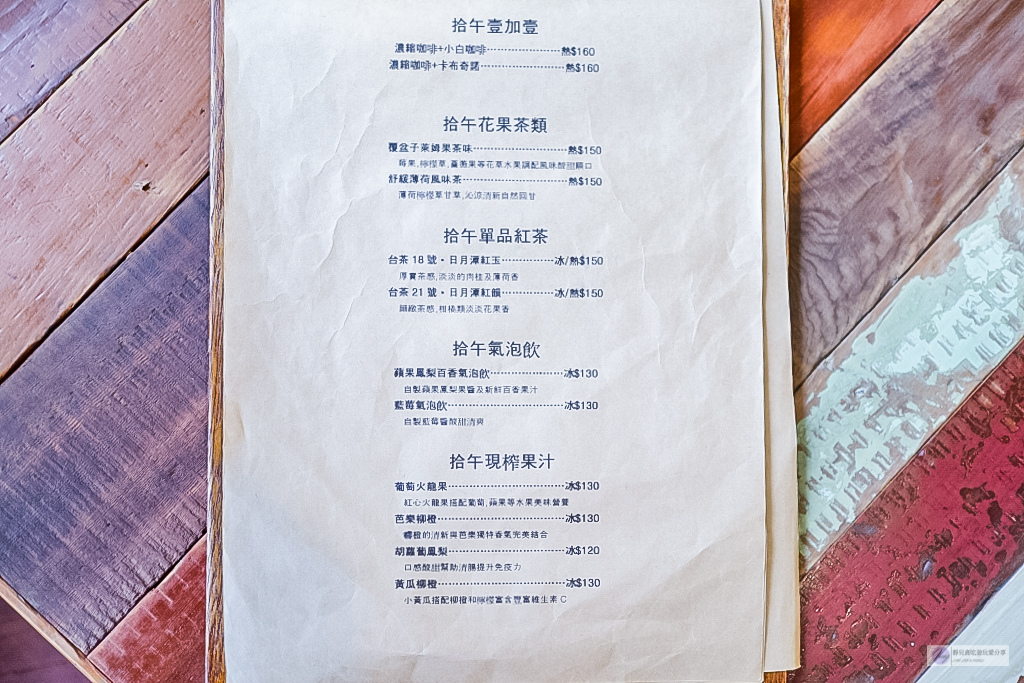 拾午壹加壹
濃縮咖啡+小白咖啡························熱$160
濃縮咖啡+卡布奇諾························熱$160
拾午花果茶類
覆盆子萊姆果茶味························熱$150
莓果,檸檬草,薔薇果等花草水果調配風味酸甜順口
舒緩薄荷風味茶························熱$150
薄荷檸檬草甘草,沁涼清新自然回甘
拾午單品紅茶
台茶 18 號・日月潭紅玉···············冰/熱$150
厚實茶感,淡淡的肉桂及薄荷香
台茶 21 號・日月潭紅韻···············冰/熱$150
細緻茶感,柑橘類淡淡花果香
拾午氣泡飲
蘋果鳳梨百香氣泡飲·····················冰$130
自製蘋果鳳梨果醬及新鮮百香果汁
藍莓氣泡飲································冰$130
自製藍莓醬酸甜清爽
拾午現榨果汁
葡萄火龍果································冰$130
紅心火龍果搭配葡萄,蘋果等水果美味營養
芭樂柳橙···································冰$130
柳橙的清新與芭樂獨特香氣完美結合
胡蘿蔔鳳梨································冰$120
口感酸甜幫助清腸提升免疫力
黃瓜柳橙···································冰$130
小黃瓜搭配柳橙和檸檬富含豐富維生素 C